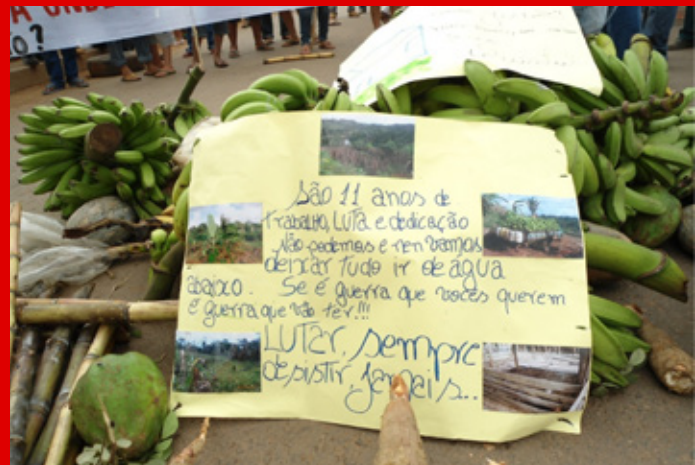 A ONDE
ÃO?
São 11 anos de
Trabalho, LUTA e dedicação
Não podemos e nem vamos
deixar tudo ir de água
abaixo. Se é guerra que vocês querem
é guerra que vão ter!!!
LUTAr, sempre
desistir, Jamais..